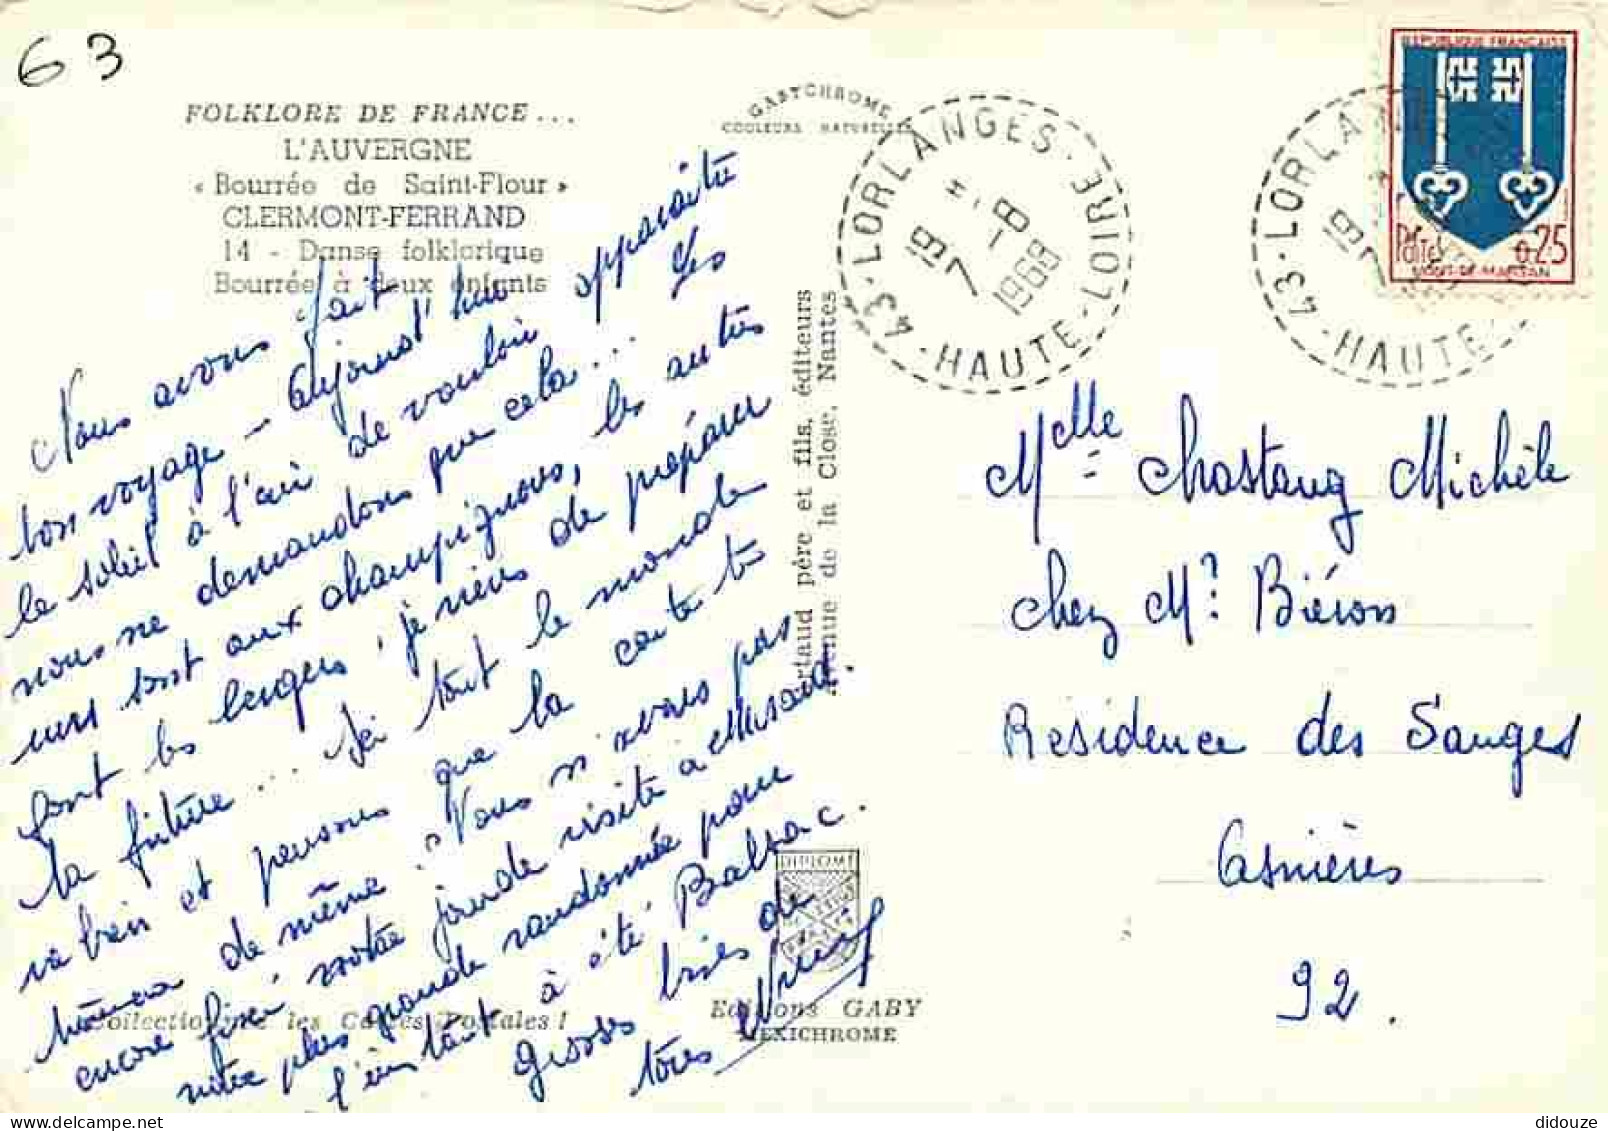 63
FOLKLORE DE FRANCE...
L'AUVERGNE
« Bourrée de Saint-Flour »
CLERMONT-FERRAND
14 - Danse folklorique
Bourrée à deux enfants
GABYCHROME
COULEURS NATURELLES
43 · LORLANGES · HAUTE-LOIRE
19 H
7 - 8
1968
RÉPUBLIQUE FRANÇAISE
Postes 0,25
MONT-DE-MARSAN
43 · LORLAN
HAUTE
19
7
Nous avons fait
bon voyage - aujourd'hui
le soleil à l'air de vouloir apparaître
nous ne demandons que cela... Les
uns sont aux champignons, les autres
font les bergers, je viens de préparer
la friture... Ici tout le monde
va bien et pensons que la carte te
de même. Vous n'avez pas
encore fixé votre jour de visite à
notre plus grande randonnée pour
l'instant à été Balzac.
grosses bises de
tous
Artaud père et fils, éditeurs
Avenue de la Close, Nantes
DIPLOME
Collectionnez les Cartes Postales !
Editions GABY
MEXICHROME
Melle Chastang Michèle
chez Mr Biéron
Résidence des Sanges
Asnières
92.
didouze